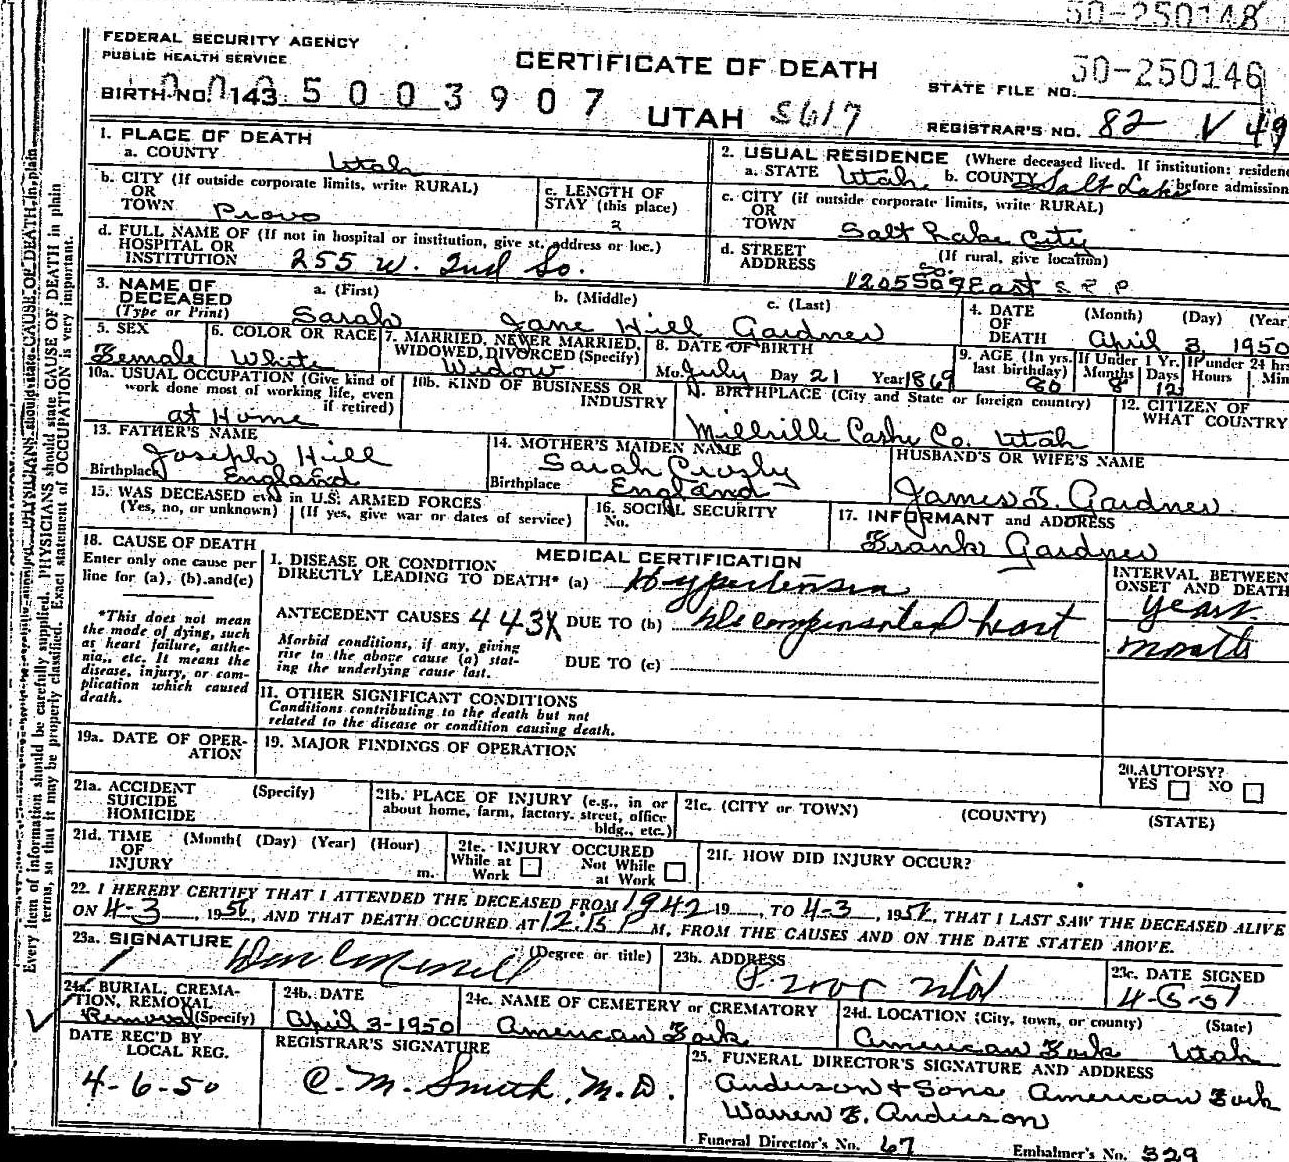 50-250148
FEDERAL SECURITY AGENCY
PUBLIC HEALTH SERVICE
CERTIFICATE OF DEATH
50-250146
STATE FILE NO.
BIRTH NO. 143 5003907
UTAH S617
REGISTRAR'S NO. 82 V 49
1. PLACE OF DEATH
a. COUNTY Utah
2. USUAL RESIDENCE (Where deceased lived. If institution: residence
a. STATE Utah b. COUNTY Salt Lake before admission
b. CITY (If outside corporate limits, write RURAL)
OR
TOWN Provo
c. LENGTH OF
STAY (this place)
2
c. CITY (if outside corporate limits, write RURAL)
OR
TOWN Salt Lake City
d. FULL NAME OF (If not in hospital or institution, give st. address or loc.)
HOSPITAL OR
INSTITUTION 255 W. 2nd So.
d. STREET (If rural, give location)
ADDRESS 12055 So 9 East
3. NAME OF
DECEASED
(Type or Print)
a. (First) b. (Middle) c. (Last)
Sarah Jane Hill Gardner
4. DATE (Month) (Day) (Year
OF
DEATH April 3 1950
5. SEX
Female
6. COLOR OR RACE
White
7. MARRIED, NEVER MARRIED,
WIDOWED, DIVORCED (Specify)
Widow
8. DATE OF BIRTH
Mo. July Day 21 Year 1869
9. AGE (In yrs. last birthday) 80
If Under 1 Yr. Months 8 Days 12
If under 24 hrs Hours Min
10a. USUAL OCCUPATION (Give kind of
work done most of working life, even
if retired)
at Home
10b. KIND OF BUSINESS OR
INDUSTRY
11. BIRTHPLACE (City and State or foreign country)
Millville Cashe Co. Utah
12. CITIZEN OF
WHAT COUNTRY
13. FATHER'S NAME
Joseph Hill
Birthplace England
14. MOTHER'S MAIDEN NAME
Sarah Crosby
Birthplace England
HUSBAND'S OR WIFE'S NAME
James T. Gardner
15. WAS DECEASED EVER in U.S. ARMED FORCES
(Yes, no, or unknown) (If yes, give war or dates of service)
16. SOCIAL SECURITY
No.
17. INFORMANT and ADDRESS
Frank Gardner
18. CAUSE OF DEATH
Enter only one cause per
line for (a), (b).and(c)
*This does not mean
the mode of dying, such
as heart failure, asthe-
nia,, etc. It means the
disease, injury, or com-
plication which caused
death.
MEDICAL CERTIFICATION
1. DISEASE OR CONDITION
DIRECTLY LEADING TO DEATH* (a) Hypertension
INTERVAL BETWEEN
ONSET AND DEATH
years
ANTECEDENT CAUSES 443X DUE TO (b) Decompensated heart
month
Morbid conditions, if any, giving
rise to the above cause (a) stat-
ing the underlying cause last.
DUE TO (c)
11. OTHER SIGNIFICANT CONDITIONS
Conditions contributing to the death but not
related to the disease or condition causing death.
19a. DATE OF OPER-
ATION
19. MAJOR FINDINGS OF OPERATION
20. AUTOPSY?
YES NO
21a. ACCIDENT (Specify)
SUICIDE
HOMICIDE
21b. PLACE OF INJURY (e.g., in or
about home, farm, factory, street, office
bldg., etc.)
21c. (CITY or TOWN) (COUNTY) (STATE)
21d. TIME (Month( (Day) (Year) (Hour)
OF
INJURY m.
21e. INJURY OCCURED
While at Work Not While at Work
21f. HOW DID INJURY OCCUR?
22. I HEREBY CERTIFY THAT I ATTENDED THE DECEASED FROM 1942 19__, TO 4-3, 1950, THAT I LAST SAW THE DECEASED ALIVE
ON 4-3, 1950, AND THAT DEATH OCCURED AT 12:15 P M, FROM THE CAUSES AND ON THE DATE STATED ABOVE.
23a. SIGNATURE (Degree or title)
23b. ADDRESS
Provo Utah
23c. DATE SIGNED
24a. BURIAL, CREMA-
TION, REMOVAL
Removal (Specify)
24b. DATE
April 3-1950
24c. NAME OF CEMETERY or CREMATORY
American Fork
24d. LOCATION (City, town, or county) (State)
American Fork Utah
DATE REC'D BY
LOCAL REG.
4-6-50
REGISTRAR'S SIGNATURE
C. M. Smith, M.D.
25. FUNERAL DIRECTOR'S SIGNATURE AND ADDRESS
Anderson & Sons American Fork
Warren B. Anderson
Funeral Director's No. 67 Embalmer's No. 329
Every item of information should be carefully supplied. PHYSICIANS should state CAUSE OF DEATH in plain
terms, so that it may be properly classified. Exact statement of OCCUPATION is very important.